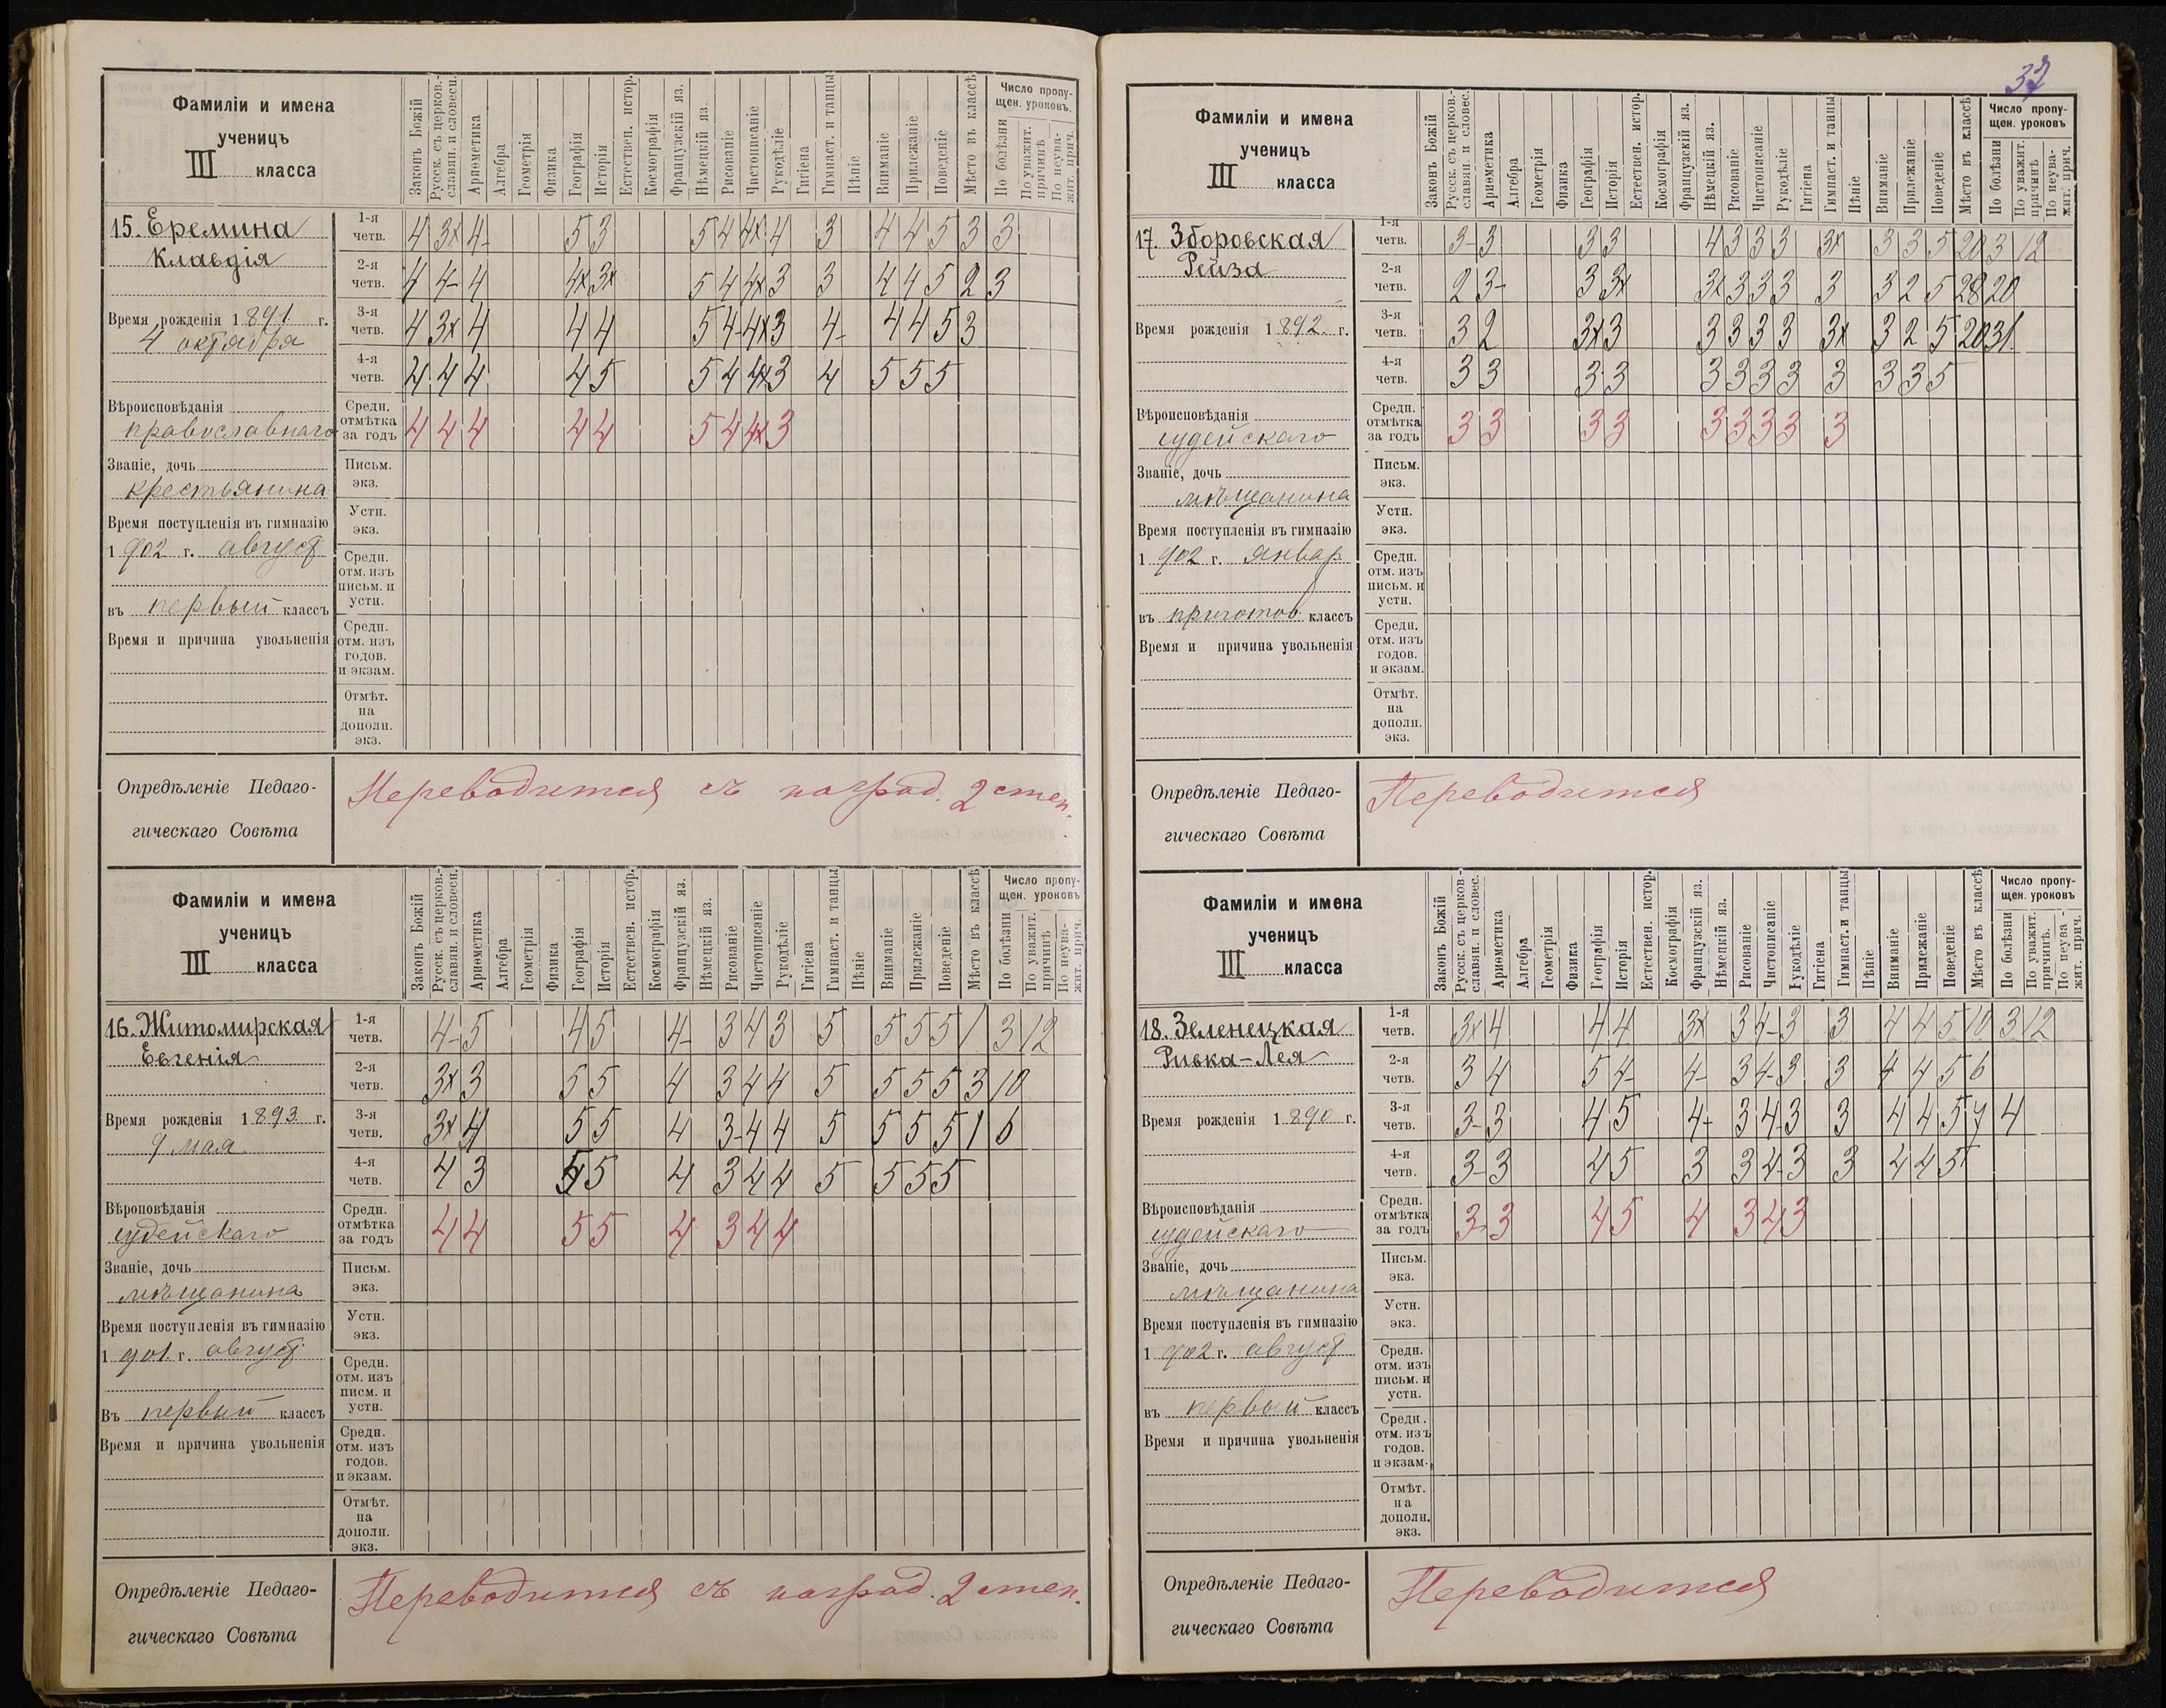 Фамиліи и имена
ученицъ
III класса
Законъ Божій
Русск. съ церков.-
славян. и словесн.
Ариѳметика
Алгебра
Геометрія
Физика
Географія
Исторія
Естествен. истор.
Космографія
Французскій яз.
Нѣмецкій яз.
Рисованіе
Чистописаніе
Рукодѣліе
Гигіена
Гимнаст. и танцы
Пѣніе
Вниманіе
Прилежаніе
Поведеніе
Мѣсто въ классѣ
Число пропу-
щен. уроковъ.
По болѣзни
По уважит.
причинѣ
По неува-
жит. прич.
15. Еремина
Клавдія
Время рожденія 1891 г.
4 октября
Вѣроисповѣданія
православнаго
Званіе, дочь
крестьянина
Время поступленія въ гимназію
1902 г. август
въ первый классъ
Время и причина увольненія
1-я четв. 4 3х 4- 5 3 5 4 4х 4 3 4 4 5 3 3
2-я четв. 4 4- 4 4х 3х 5 4 4х 3 3 4 4 5 2 3
3-я четв. 4 3х 4 4 4 5 4- 4х 3 4- 4 4 5 3
4-я четв. 4 4 4 4 5 5 4 4х 3 4 5 5 5
Средн. отмѣтка за годъ 4 4 4 4 4 5 4 4х 3
Письм. экз.
Устн. экз.
Средн. отм. изъ письм. и устн.
Средн. отм. изъ годов. и экзам.
Отмѣт. на дополн. экз.
Опредѣленіе Педаго-
гическаго Совѣта
Переводится съ наград. 2 степ.
Фамиліи и имена
ученицъ
III класса
Законъ Божій
Русск. съ церков.-
славян. и словесн.
Ариѳметика
Алгебра
Геометрія
Физика
Географія
Исторія
Естествен. истор.
Космографія
Французскій яз.
Нѣмецкій яз.
Рисованіе
Чистописаніе
Рукодѣліе
Гигіена
Гимнаст. и танцы
Пѣніе
Вниманіе
Прилежаніе
Поведеніе
Мѣсто въ классѣ
Число пропу-
щен. уроковъ
По болѣзни
По уважит.
причинѣ
По неува-
жит. прич.
16. Житомирская
Евгенія
Время рожденія 1893 г.
9 мая
Вѣроповѣданія
іудейскаго
Званіе, дочь
мѣщанина
Время поступленія въ гимназію
1901 г. август
Въ первый классъ
Время и причина увольненія
1-я четв. 4- 5 4 5 4- 3 4 3 5 5 5 5 1 3 12
2-я четв. 3х 3 5 5 4 3 4 4 5 5 5 5 3 10
3-я четв. 3х 4 5 5 4 3- 4 4 5 5 5 5 1 6
4-я четв. 4 3 5 5 4 3 4 4 5 5 5 5
Средн. отмѣтка за годъ 4 4 5 5 4 3 4 4
Письм. экз.
Устн. экз.
Средн. отм. изъ писм. и устн.
Средн. отм. изъ годов. и экзам.
Отмѣт. на дополн. экз.
Опредѣленіе Педаго-
гическаго Совѣта
Переводится съ наград. 2 степ.
Фамиліи и имена
ученицъ
III класса
Законъ Божій
Русск. съ церков.-
славян. и словес.
Ариѳметика
Алгебра
Геометрія
Физика
Географія
Исторія
Естествен. истор.
Космографія
Французскій яз.
Нѣмецкій яз.
Рисованіе
Чистописаніе
Рукодѣліе
Гигіена
Гимнаст. и танцы
Пѣніе
Вниманіе
Прилежаніе
Поведеніе
Мѣсто въ классѣ
Число пропу-
щен. уроковъ
По болѣзни
По уважит.
причинѣ
По неува-
жит. прич.
17. Зборовская
Рейза
Время рожденія 1892 г.
Вѣроисповѣданія
іудейскаго
Званіе, дочь
мѣщанина
Время поступленія въ гимназію
1902 г. январ.
въ приготов. классъ
Время и причина увольненія
1-я четв. 3- 3 3 3 4 3 3 3 3х 3 3 5 20 3 12
2-я четв. 2 3- 3 3х 3х 3 3 3 3 3 2 5 28 20
3-я четв. 3 2 3х 3 3 3 3 3 3х 3 2 5 20 31
4-я четв. 3 3 3 3 3 3 3 3 3 3 3 5
Средн. отмѣтка за годъ 3 3 3 3 3 3 3 3 3
Письм. экз.
Устн. экз.
Средн. отм. изъ письм. и устн.
Средн. отм. изъ годов. и экзам.
Отмѣт. на дополн. экз.
Опредѣленіе Педаго-
гическаго Совѣта
Переводится
Фамиліи и имена
ученицъ
III класса
Законъ Божій
Русск. съ церков-
славян. и словес.
Ариѳметика
Алгебра
Геометрія
Физика
Географія
Исторія
Естествен. истор.
Космографія
Французскій яз.
Нѣмецкій яз.
Рисованіе
Чистописаніе
Рукодѣліе
Гигіена
Гимнаст. и танцы
Пѣніе
Вниманіе
Прилежаніе
Поведеніе
Мѣсто въ классѣ
Число пропу-
щен. уроковъ
По болѣзни
По уважит.
причинѣ.
По неува-
жит. прич.
18. Зеленецкая
Ривка-Лея
Время рожденія 1890 г.
Вѣроисповѣданія
іудейскаго
Званіе, дочь
мѣщанина
Время поступленія въ гимназію
1902 г. август
въ первый классъ
Время и причина увольненія
1-я четв. 3х 4 4 4 3х 3 4- 3 3 4 4 5 10 3 12
2-я четв. 3 4 5 4- 4- 3 4- 3 3 4 4 5 6
3-я четв. 3- 3 4 5 4- 3 4 3 3 4 4 5 7 4
4-я четв. 3- 3 4 5 3 3 4- 3 3 4 4 5
Средн. отмѣтка за годъ 3- 3 4 5 4 3 4 3
Письм. экз.
Устн. экз.
Средн. отм. изъ письм. и устн.
Средн. отм. изъ годов. и экзам.
Отмѣт. на дополн. экз.
Опредѣленіе Педаго-
гическаго Совѣта
Переводится